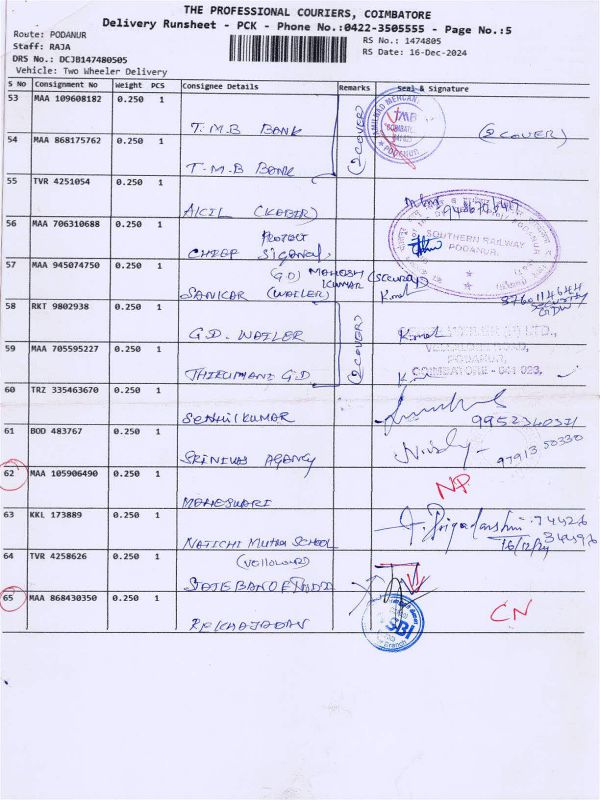 THE PROFESSIONAL COURIERS, COIMBATORE
Delivery Runsheet - PCK - Phone No.:0422-3505555 - Page No.:5
Route: PODANUR
RS No.: 1474805
Staff: RAJA
RS Date: 16-Dec-2024
DRS No.: DCJB147480505
Vehicle: Two Wheeler Delivery
S No Consignment No Weight PCS Consignee Details Remarks Seal & Signature
53 MAA 109608182 0.250 1 T.M.B BANK
(2 COVER)
TMB
PODANUR
(2 COVER)
54 MAA 868175762 0.250 1 T.M.B BANK
55 TVR 4251054 0.250 1 AICIL (KABIR)
56 MAA 706310688 0.250 1 CHIEF
SOUTHERN RAILWAY
PODANUR.
57 MAA 945074750 0.250 1 SANKAR (WAILER)
GD) MAHESH KUMAR
8760114644
58 RKT 9802938 0.250 1 G.D. WAILER
(2 COVER)
59 MAA 705595227 0.250 1 G.D
PODANUR,
COIMBATORE - 641 023,
60 TRZ 335463670 0.250 1 SENTHIL KUMAR
61 BOD 483767 0.250 1 SRINIVAS AGANCY
97913 50330
62 MAA 105906490 0.250 1 MAHESWARI
NP
63 KKL 173889 0.250 1 NATICHI MUTHU SCHOOL
16/12/24
64 TVR 4258626 0.250 1 (Vellalour)
65 MAA 868430350 0.250 1
SBI
Branch
CN